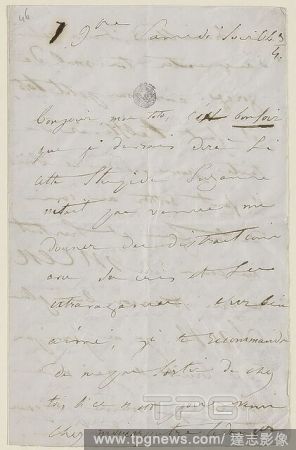 46
9bre Samedi soir
Bonjour mon toto, c'est bonsoir
que je devrais dire si
cette stupide Suzanne
n'était pas venue me
donner des distractions
avec ses cris et ses
extravagances
aimé, je te recommande
de ne pas sortir de chez
toi si ce n'est pour venir
chez
TPG
www.tpgnews.com / 達志影像